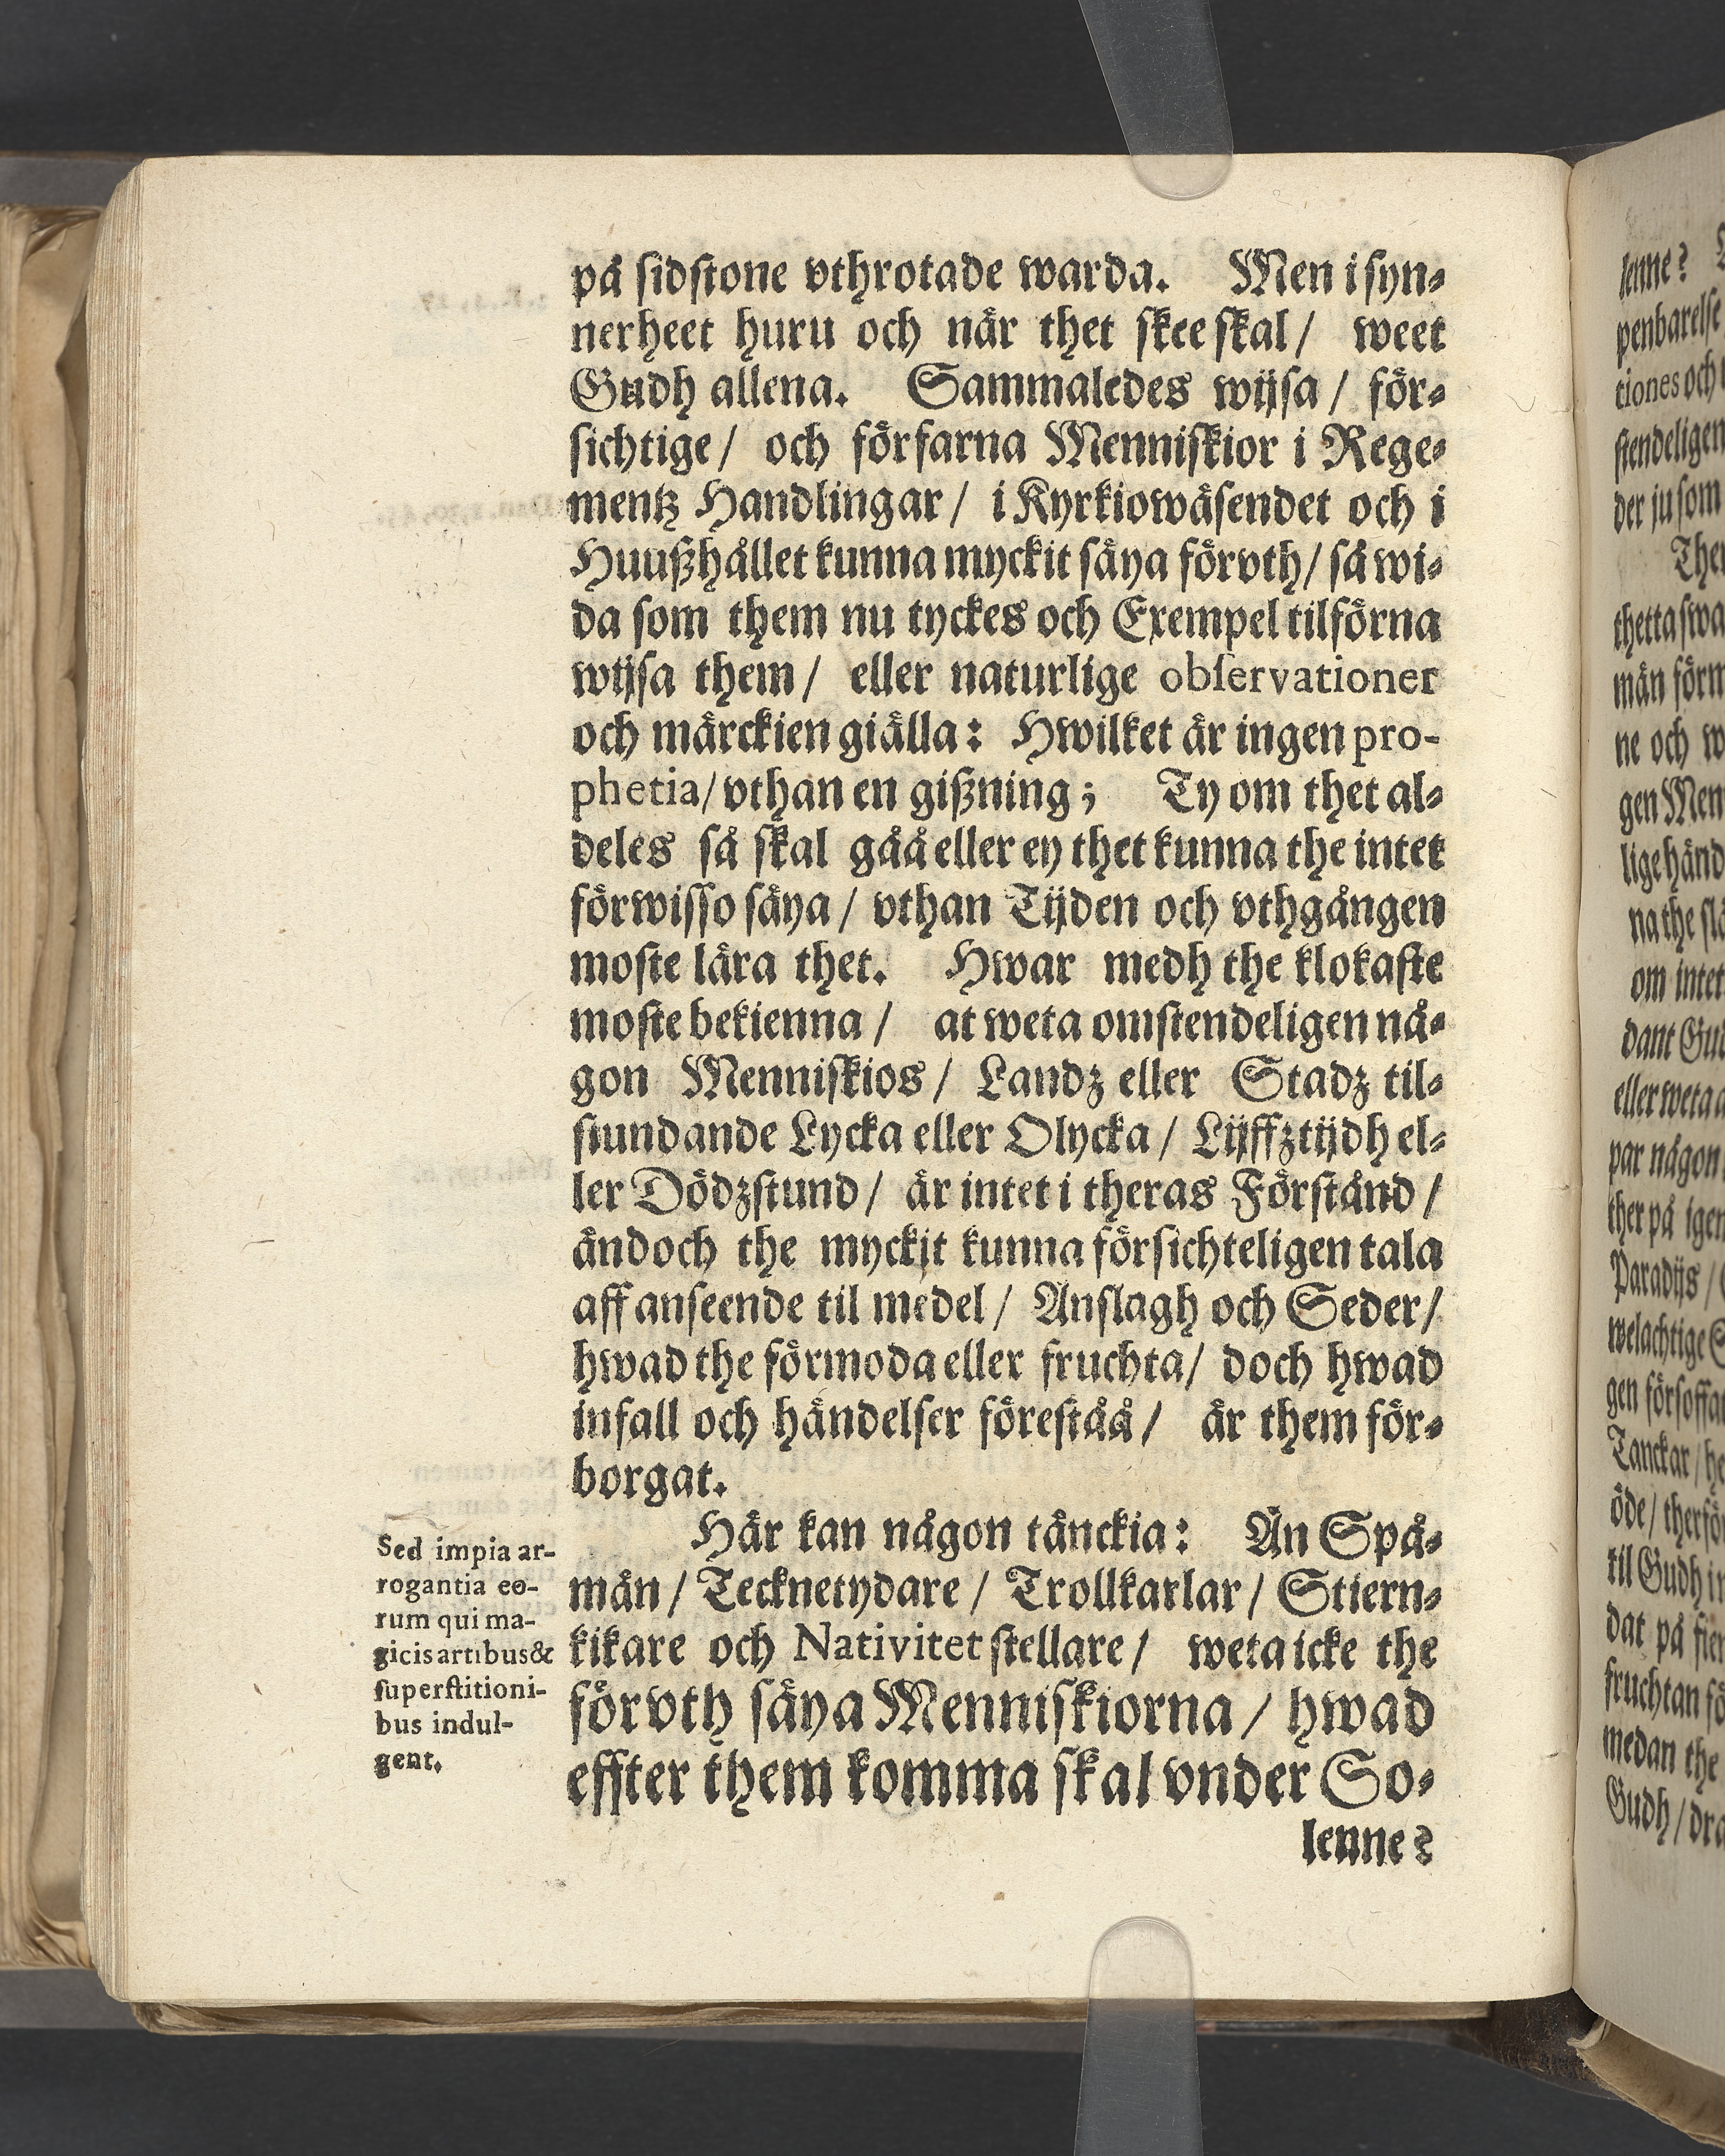 på sidstone vthrotade warda. Men i syn-
nerheet huru och när thet skee skal / weet
Gudh allena. Sammaledes wijsa / för-
sichtige / och förfarna Menniskior i Rege-
mentz Handlingar / i Kyrkiowäsendet och i
Huußhållet kunna myckit säya förvth / så wi-
da som them nu tyckes och Exempel tilförna
wijsa them / eller naturlige observationer
och märckien giälla: Hwilket är ingen pro-
phetia / vthan en gißning; Ty om thet al-
deles så skal gåå eller ey thet kunna the intet
förwisso säya / vthan Tijden och vthgången
moste lära thet. Hwar medh the klokaste
moste bekienna / at weta omstendeligen nå-
gon Menniskios / Landz eller Stadz til-
stundande Lycka eller Olycka / Lijffztijdh el-
ler Dödzstund / är intet i theras Förstånd /
ändoch the myckit kunna försichteligen tala
aff anseende til medel / Anslagh och Seder /
hwad the förmoda eller fruchta / doch hwad
infall och händelser föreståå / är them för-
borgat.
Här kan någon tänckia: Än Spå-
män / Tecknetydare / Trollkarlar / Stiern-
kikare och Nativitet stellare / weta icke the
förvth säya Menniskiorna / hwad
effter them komma skal vnder So-
lenne?
Sed impia ar-
rogantia eo-
rum qui ma-
gicis artibus &
superstitioni-
bus indul-
gent.
lenne?
penbarelse
tiones och
stendeligen
der ju som
thetta swa
män förm
ne och w
gen Men
lige händ
na the slä
om intet
dant Gu
eller weta
par någon
ther på igen
Paradijs /
welachtige
gen försoffa
Tanckar / he
öde / therfö
til Gudh in
dat på
fruchtan fö
medan the
Gudh / dra